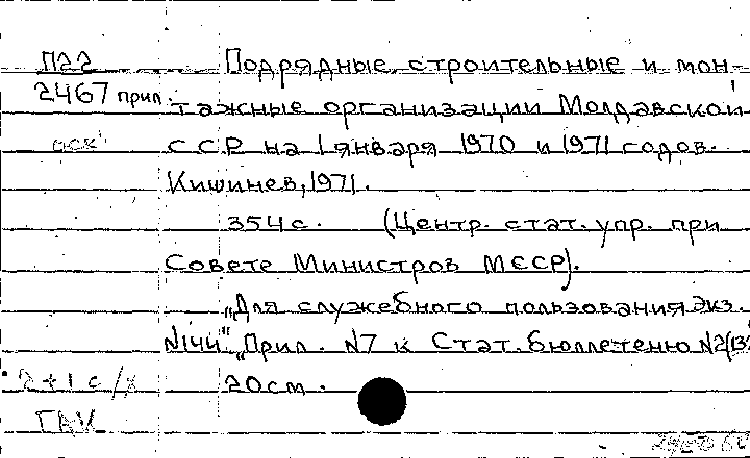 П22
2467 прил
Подрядные строительные и мон-
тажные организации Молдавской
ССР на 1 января 1970 и 1971 годов.
Кишинев, 1971.
354 с. (Центр. стат. упр. при
Совете Министров МССР).
"Для служебного пользования экз.
N144" "Прил. N7 к Стат. бюллетеню N2(13
20 см.
2+1 с/х